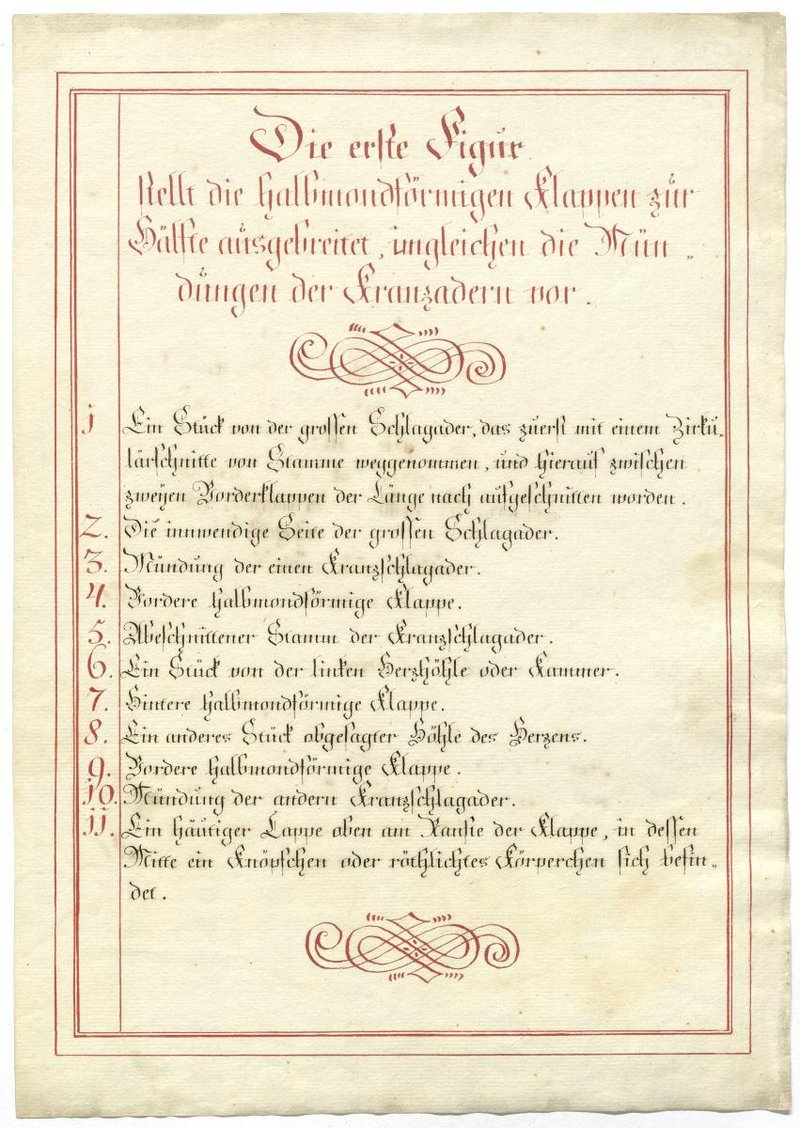 Die erste Figur
stellt die halbmondförmigen Klappen zur
Hälfte ausgebreitet, imgleichen die Mün„
dungen der Kranzadern vor.
1 Ein Stück von der grossen Schlagader, das zuerst mit einem Zirku„
lärschnitte von Stamme weggenommen, und hierauf zwischen
zweyen Vorderklappen der Länge nach aufgeschnitten worden.
2. Die innwendige Seite der grossen Schlagader.
3. Mündung der einen Kranzschlagader.
4. Vordere halbmondförmige Klappe.
5. Abeschnittener Stamm der Kranzschlagader.
6. Ein Stück von der linken Herzhöhle oder Kammer.
7. Hintere halbmondförmige Klappe.
8. Ein anderes Stück obgesagter Höhle des Herzens.
9. Vordere halbmondförmige Klappe.
10. Mündung der andern Kranzschlagader.
11. Ein häutiger Lappe oben am Ranfte der Klappe, in dessen
Mitte ein Knöpfchen oder röthlichtes Körperchen sich befin„
det.